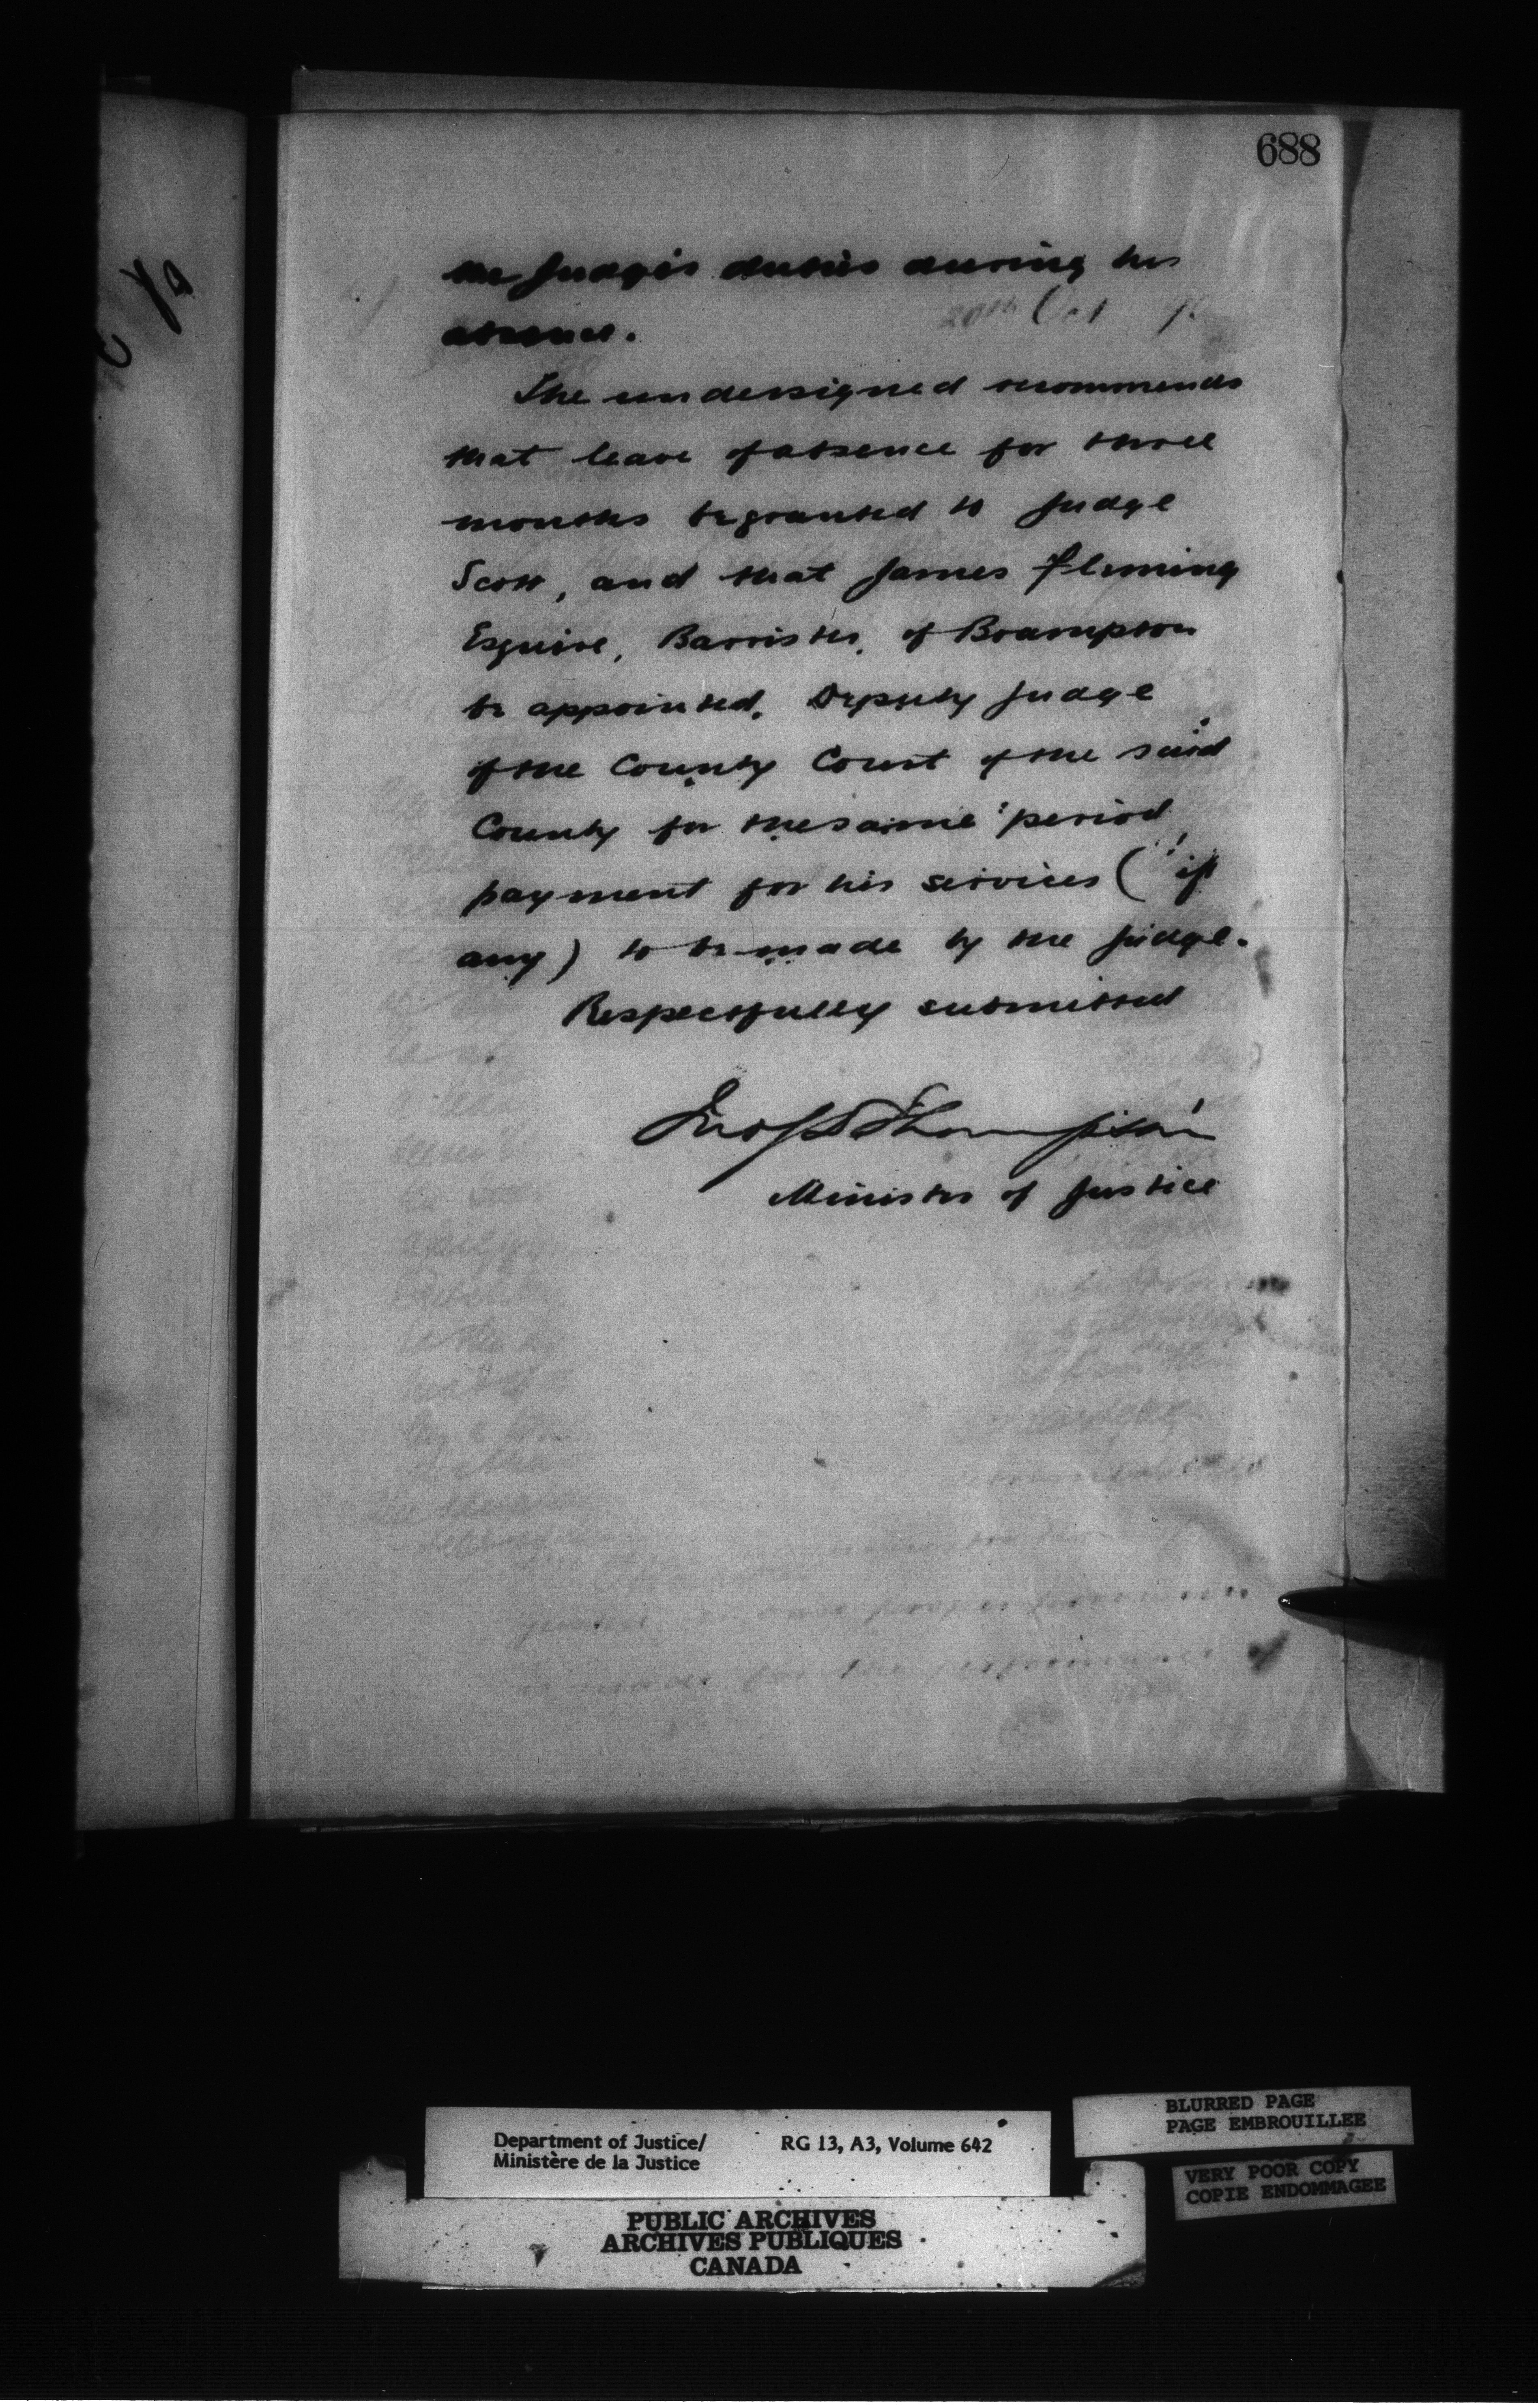 688
the Judge's duties during his
absence.
20th Oct 9
The undersigned recommends
that leave of absence for three
months be granted to Judge
Scott, and that James Fleming
Esquire, Barrister, of Brampton
be appointed, Deputy Judge
of the County Court of the said
County for the same period,
payment for his services (if
any) to be made by the Judge.
Respectfully submitted
Jno S D Thompson
Minister of Justice
BLURRED PAGE
PAGE EMBROUILLEE
Department of Justice/ RG 13, A3, Volume 642
Ministère de la Justice
VERY POOR COPY
COPIE ENDOMMAGEE
PUBLIC ARCHIVES
ARCHIVES PUBLIQUES
CANADA